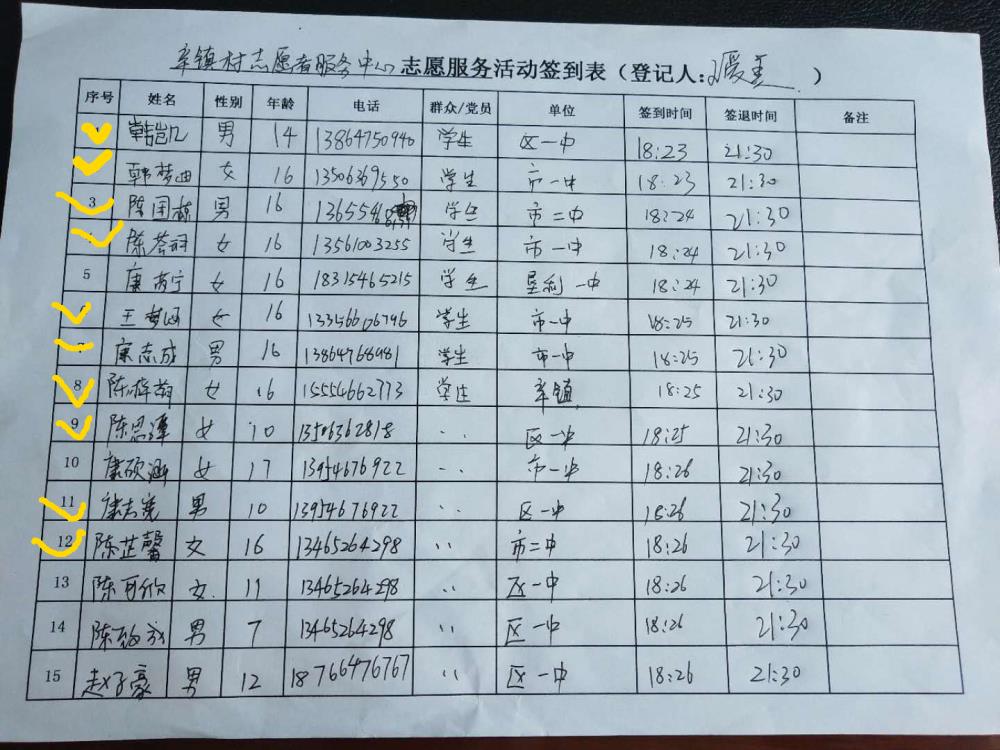 辛镇村志愿者服务中心志愿服务活动签到表（登记人： ）
序号 姓名 性别 年龄 电话 群众/党员 单位 签到时间 签退时间 备注
韩凯 男 14 13864750940 学生 区一中 18:23 21:30
韩梦 女 16 13506369550 学生 市一中 18:23 21:30
3 陈国 男 16 学生 市二中 18:24 21:30
陈 女 16 13561003255 学生 市一中 18:24 21:30
5 康 宁 女 16 18315465215 学生 垦利一中 18:24 21:30
王梦涵 女 16 学生 市一中 18:25 21:30
7 康志成 男 16 学生 市一中 18:25 21:30
8 陈 女 16 15554662773 学生 辛镇 18:25 21:30
9 陈思 女 10 13506362818 ·· 区一中 18:25 21:30
10 康硕涵 女 17 13954676922 ·· 市一中 18:26 21:30
11 康志 男 10 13954676922 区一中 18:26 21:30
12 陈芷馨 女 16 13465264298 ·· 市二中 18:26 21:30
13 陈可欣 女 11 13465264298 ·· 区一中 18:26 21:30
14 陈 男 7 13465264298 ·· 区一中 18:26 21:30
15 赵子豪 男 12 18766476767 ·· 区一中 18:26 21:30